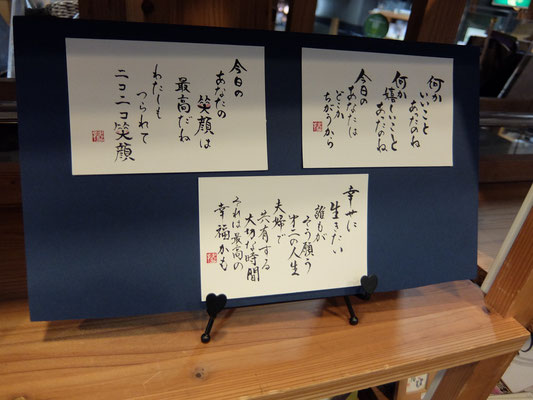 今日の
あなたの
笑顔は
最高だね
わたしも
つられて
ニコニコ笑顔
何か
いいこと
あったのね
何か
嬉しいこと
あったのね
今日の
あなたは
どこか
ちがうから
幸せに
生きたい
誰もが
そう願う
第二の人生
夫婦で
共有する
大切な時間
それは最高の
幸福かも